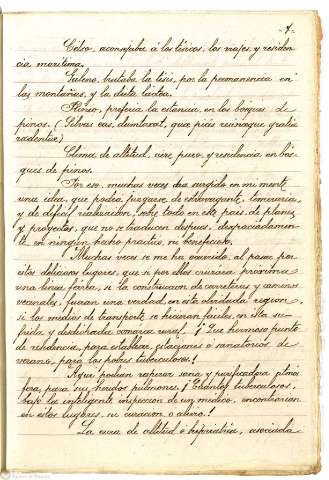 Celso, aconsejaba á los tísicos, los viajes y residen
cia marítima.
Galeno, trataba la tisis, por la permanencia en
las montañas, y la dieta láctea.
Plinio, preferia la estancia, en los bosques de
pinos. (Silvas eas, dumtaxat, quæ picis resinæque gratia
radentur)
Clima de altitud, aire puro, y residencia en bos
ques de pinos.
Por eso, muchas veces ha surgido en mi mente
una idea, que podrá juzgarse de extravagante, temeraria,
y de dificil realizacion, sobre todo en este pais, de planes
y proyectos, que no se traducen despues, desgraciadamen
te, en ningún hecho practico, ni beneficioso.
Muchas veces se me ha ocurrido, al pasar por
estos deliciosos lugares, que si por ellos cruzara próxima
una linea ferrea, si la construccion de carreteras y caminos
vecinales, fueran una verdad, en esta olvidada region
si los medios de transporte se hicieran faciles, en esta su-
frida y desdichada comarca rural! ¡Que hermoso punto
de residencia, para establecer, estaciones ó sanatorios de
verano, para los pobres tuberculosos!
Aqui podrian respirar sana, y purificadora atmós
fera, para sus heridos pulmones! ¡Cuantos tuberculosos,
bajo la inteligente inspeccion de un médico, encontrarian
en estos lugares, su curacion o alivio!
La cura de altitud é hipiatria, asociada